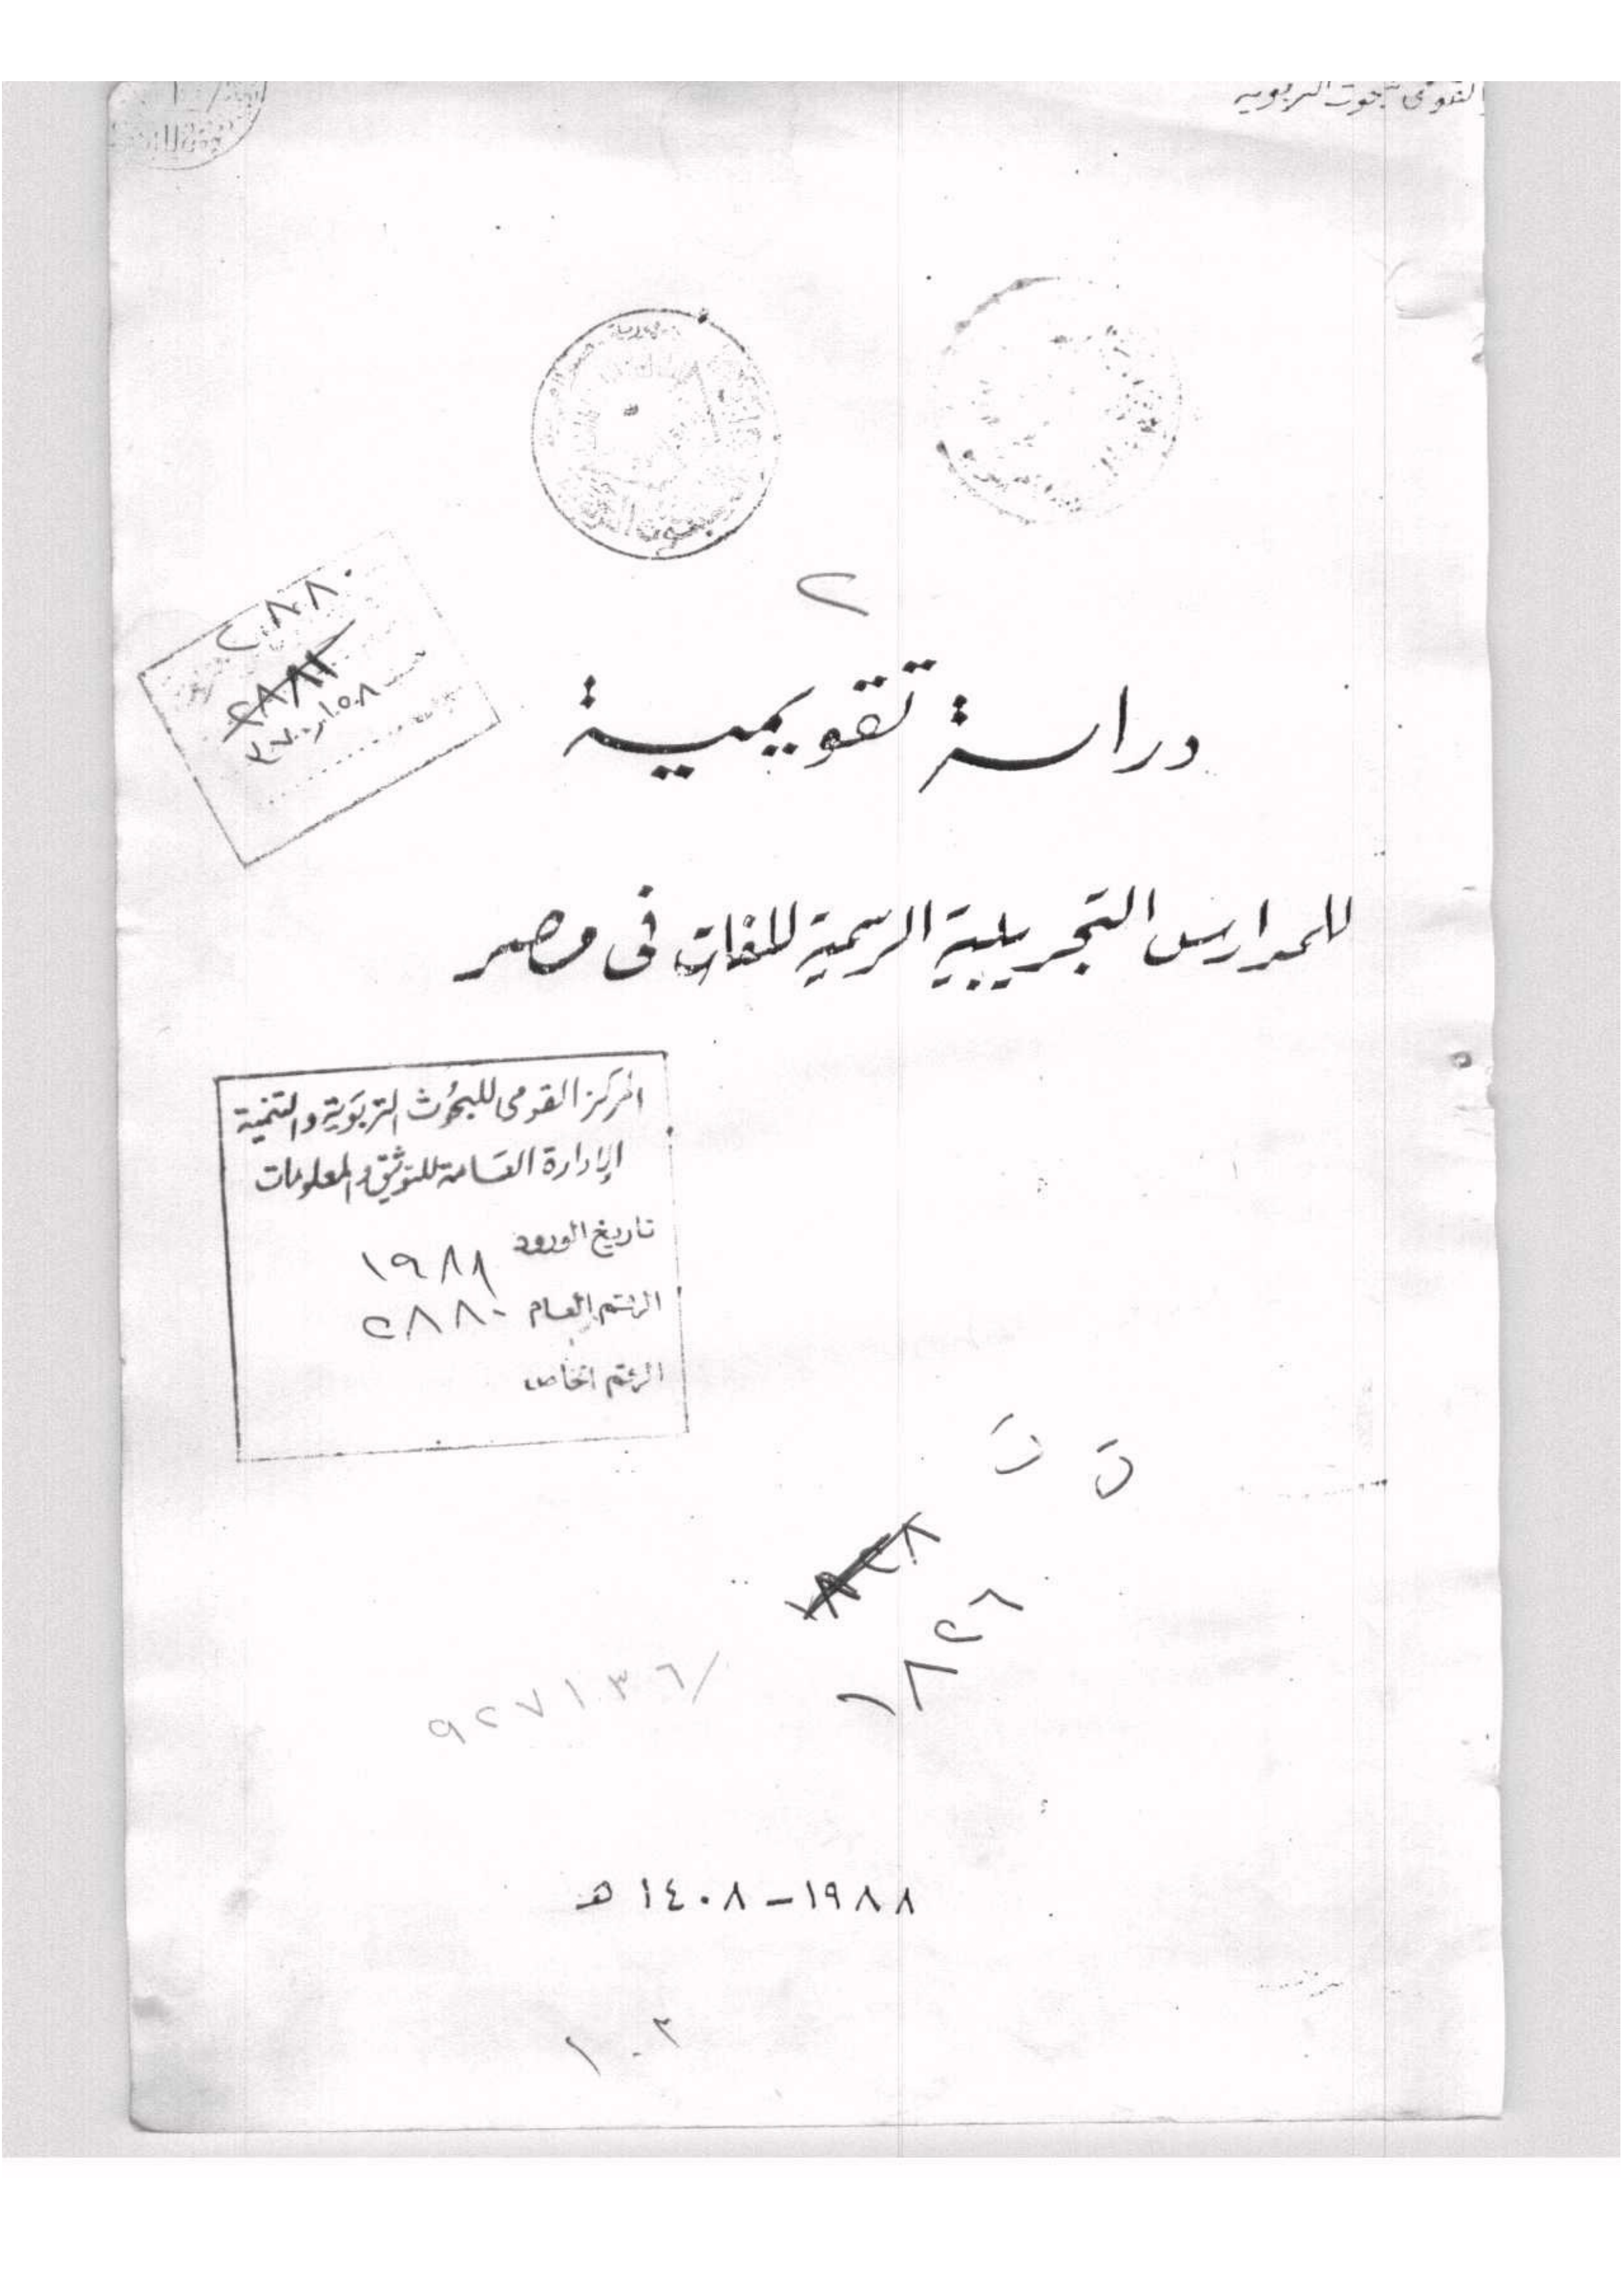 القومى للبحوث التربوية
جمهورية
٢
٢٨٨٠
دراسة تقويمية
للمدارس التجريبية الرسمية للغات فى مصر
المركز القومى للبحوث التربوية والتنمية
الإدارة العامة للتوثيق والمعلومات
تاريخ الورود ١٩٨٨
الرقم العام ٢٨٨٠
الرقم الخاص
١٨٢٦
٩٢٧١٣٦/
١٩٨٨ - ١٤٠٨ هـ
١٠٢